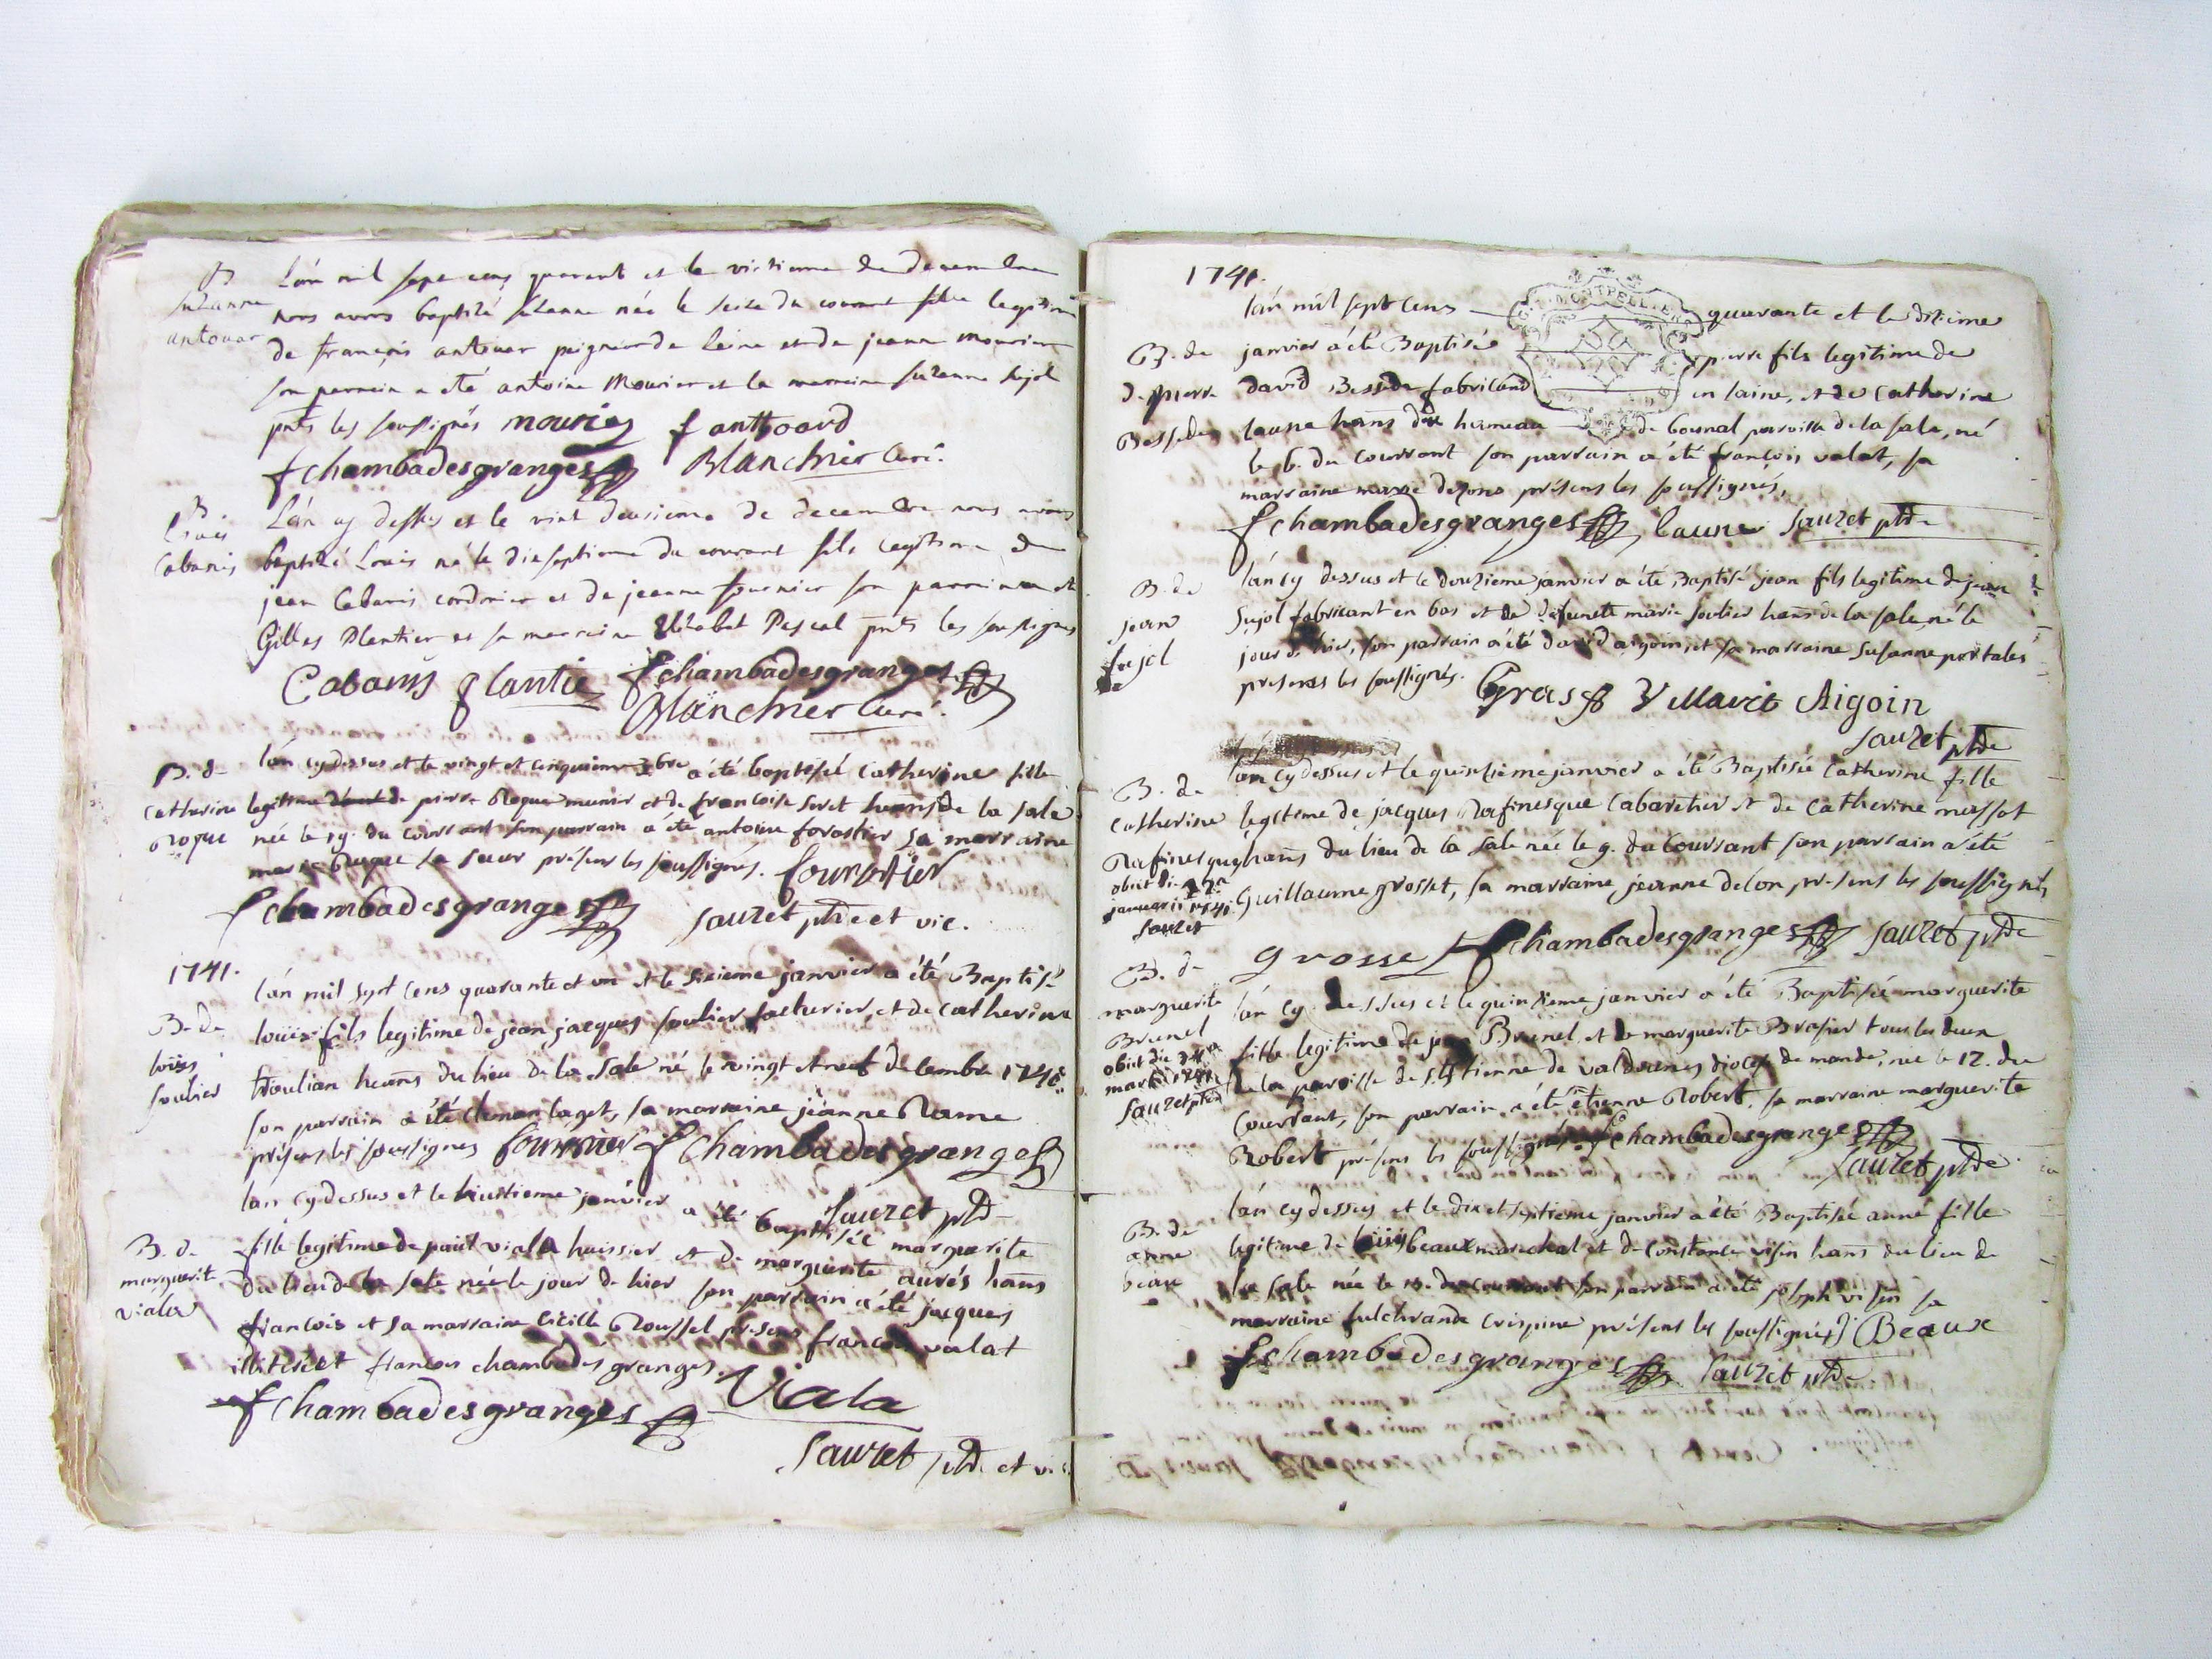 B
suzanne
antouar
L'an mil sept cens quarent et le vintieme de decembre
nous avons baptizé suzanne née le seize du courant fille legitime
de françois antouar peigneur de leine et de jeanne mourier
son parrein a eté antoine Mourier et la marreine suzanne sujol
pnts les soussignés mourier f anthoard
fchambadesgranges Blanchier Curé
B.
Louis
Cabanis
L'an cy dessus et le vint deusieme de decembre nous avons
baptizé Louis né le dieseptieme du courant fils legitime de
jean Cabanis cordonier et de jeanne fournier son parrein a eté
Gilles Plantier et sa marreine Elizabet Pascal pnts les soussignés
Cabanis plantie fchambadesgranges
Blanchier Curé
B. de
Catherine
Roque
l'an cydessus et le vingt et cinquieme xbre a été baptisée Catherine fille
legitime de pierre Roque munier et de françoise soret hans de la sale
née le 19. du courrant son parrain a été antoine forestier sa marraine
marie Roque sa sœur présens les soussignés. fourestier
fchambadesgranges sauzet ptre et vic.
1741.
B. de
loüis
soulier
l'an mil sept cens quarante et un et le sixieme janvier a été Baptisé
loüis fils legitime de jean jacques soulier facturier, et de catherine
hans du lieu de la sale né le vingt et neuf decembre 1740.
son parrain a été laget, sa marraine jeanne Rame
présens les soussignes fournier fchambadesgranges
sauzet ptre
B. de
marguerite
viala
l'an cydessus et le huitieme janvier a été baptisée marguerite
fille legitime de paul viala huissier et de marguerite aurés hans
du lieu de la sale née le jour de hier son parrain a été jacques
francois et sa marraine cicille Roussel presens francois valat
illiteré et francois chambadesgranges.
fchambadesgranges Viala
Sauzet ptre et vic
1741.
B. de
d. pierre
Bessede
l'an mil sept cens quarante et le dixieme
janvier a été Baptisée pierre fils legitime de
david Bessede fabricand en laine, et de Catherine
laune hans du hameau de bournal parroisse de la sale, né
le 6. du courrant son parrain a été françois valat, sa
marraine marie dezons présens les soussignés,
fchambadesgranges laune sauzet ptre
B. de
jean
sujol
l'an cy dessus et le douzieme janvier a été Baptisé jean fils legitime de jean
Sujol fabricant en bas et de defunte marie soulier hans de la sale, né le
jour de hier, son parrain a été david aigoin, et sa marraine Susanne portales
presens les soussignés. Gras Villaret Aigoin
sauzet ptre
B. de
Catherine
Rafinesque
obiit die 17a
januarii 1741.
sauzet
l'an cydessus et le quinzieme janvier a été Baptisée Catherine fille
legitime de jacques Rafinesque Cabaretier et de Catherine massot
hans du lieu de la sale née le 9. du courrant son parrain a été
Guillaume grosset, sa marraine jeanne delon presens les soussignés
grosse fchambadesgranges sauzet ptre
B. de
marguerite
Brunel
obiit die
martii 1741
sauzet ptre
l'an cy dessus et le quinzieme janvier a été Baptisée marguerite
fille legitime de jean Brunel, et de marguerite Brasier tous les deux
de la paroisse de st Etienne de valdonnes diocese de mande, née le 12. du
courrant, son parrain a été etienne Robert, sa marraine marguerite
Robert présens les soussignés. fchambadesgranges
sauzet ptre
B. de
anne
beau
l'an cydessus et le dix et septieme janvier a été Baptisée anne fille
legitime de louis beaux marechal et de constance visin hans du lieu de
la sale née le 13. du courrant son parrain a été joseph visin sa
marraine fulchrande crispine présens les soussignés Beaux
fchambadesgranges sauzet ptre